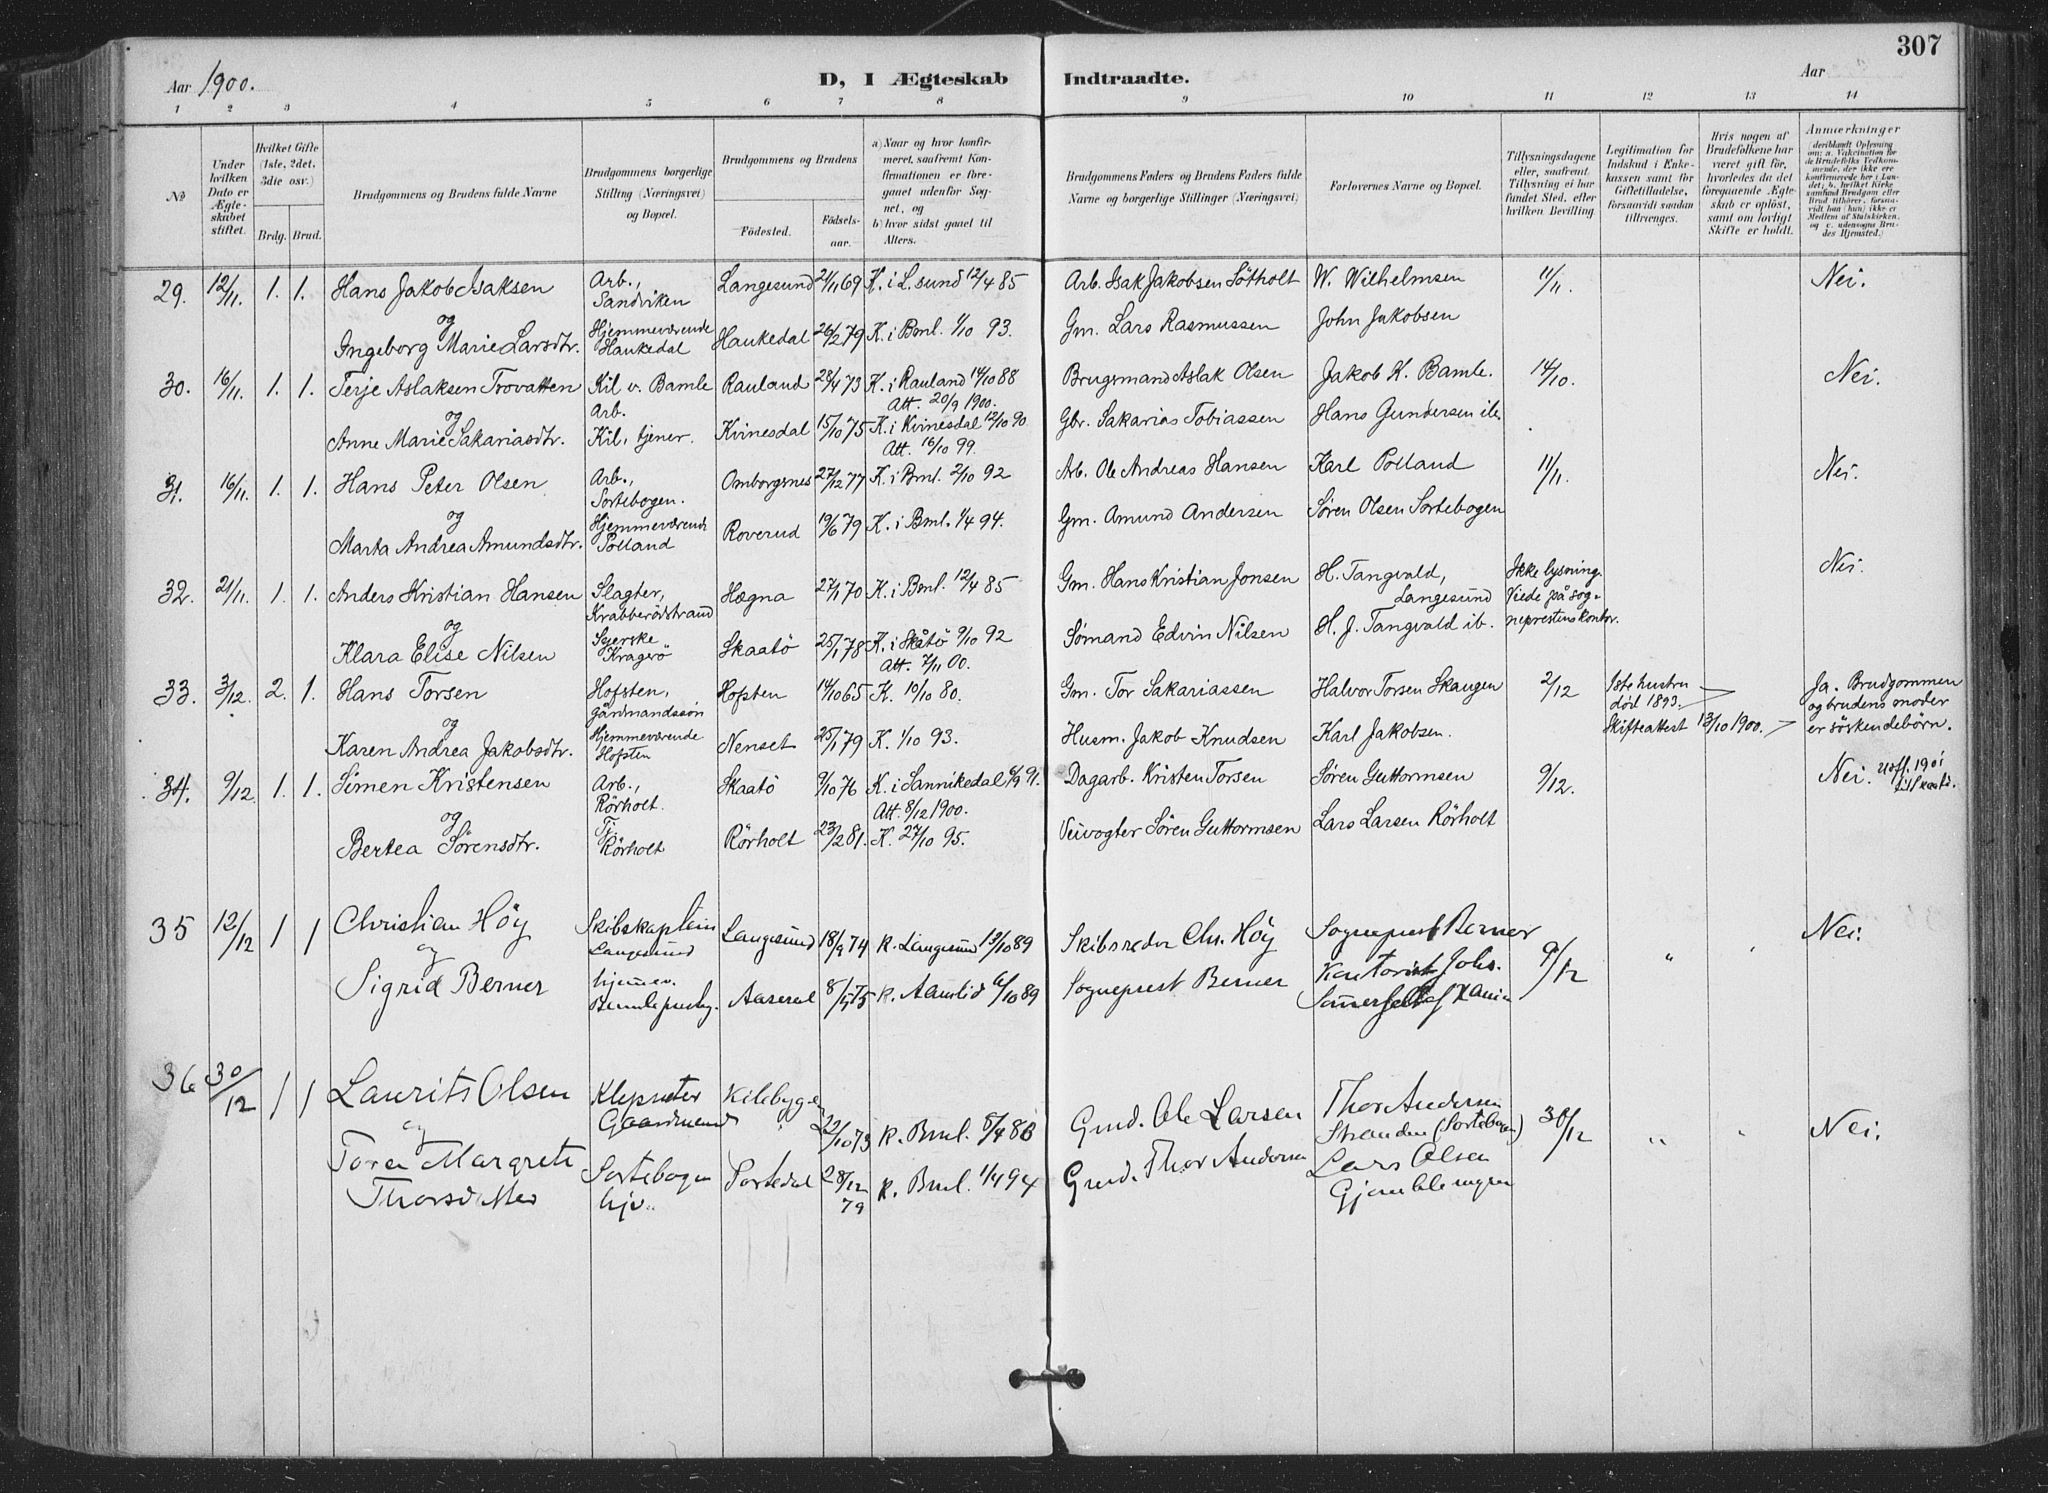 307
Aar 1900.
D, I Ægteskab Indtraadte.
Aar
1 2 3 4 5 6 7 8 9 10 11 12 13 14
№
Under hvilken Dato er Ægteskabet stiftet.
Hvilket Gifte (1ste, 2det, 3die osv.)
Brdg. Brud.
Brudgommens og Brudens fulde Navne
Brudgommens borgerlige Stilling (Næringsvei) og Bopæl.
Brudgommens og Brudens
Födested. Födselsaar.
a) Naar og hvor konfirmeret, saafremt Konfirmationen er foregaaet udenfor Sognet, og
b) hvor sidst gaaet til Alters.
Brudgommens Faders og Brudens Faders fulde Navne og borgerlige Stillinger (Næringsvei)
Forlovernes Navne og Bopæl.
Tillysningsdagene eller, saafremt Tillysning ei har fundet Sted, efter hvilken Bevilling.
Legitimation for Indskud i Enkekassen samt for Giftetilladelse, forsaavidt saadan tiltrænges.
Hvis nogen af Brudefolkene har været gift før, hvorledes da det foregaaende Ægteskab er opløst, samt om lovligt Skifte er holdt.
Anmærkninger (deriblandt Oplysning om: a. Vakcination for de Brudefolks Vedkommende, der ikke ere konfirmerede her i Landet; b. hvilket Kirkesamfund Brudgom eller Brud tilhører, forsaavidt han (hun) ikke er Medlem af Statskirken, og c. udensogns Brudes Hjemsted.)
29. 12/11. 1. 1. Hans Jakob Isaksen Arb., Sandviken Langesund 21/11 69 K. i L.sund 12/4 85 Arb. Isak Jakobsen Søtholt W. Wilhelmsen 11/11. Nei.
og
Ingeborg Marie Larsdtr. Hjemmeværende Haukedal Haukedal 26/2 79 K. i Bml. 1/10 93. Gm. Lars Rasmussen John Jakobsen
30. 16/11. 1. 1. Terje Aslaksen Trovatten Kil v. Bamle Arb. Rauland 28/4 73 K. i Rauland 14/10 88 Att. 20/9 1900. Brugsmand Aslak Olsen Jakob K. Bamle. 14/10. Nei.
og
Anne Marie Sakariasdtr. Kil, tjener. Kvinesdal 15/10 75 K. i Kvinesdal 12/10 90 Att. 16/10 99. Gbr. Sakarias Tobiassen Hans Gundersen ib.
31. 16/11. 1. 1. Hans Peter Olsen Arb., Sortebogen. Omborgsnes 27/12 77 K. i Bml. 2/10 92 Arb. Ole Andreas Hansen Karl Polland 11/11. Nei.
og
Marta Andrea Amundsdtr. Hjemmeværende Polland Roverud 19/6 79 K. i Bml. 1/4 94. Gm. Amund Andersen Søren Olsen Sortebogen
32. 21/11. 1. 1. Anders Kristian Hansen Slagter, Krabberødstrand Hægna 27/1 70 K. i Bml. 12/4 85 Gm. Hans Kristian Jonsen H. Tangvald, Langesund Ikke lysning. Viede på sogneprestens kontor. Nei.
og
Klara Elise Nilsen Syerske Kragerö Skaatö 25/1 78 K. i Skåtö 9/10 92 Att. 7/11 00. Sømand Edvin Nilsen H. J. Tangvald ib.
33. 3/12. 2. 1. Hans Torsen Hofsten, gårdmandssön Hofsten 14/10 65 K. 10/10 80. Gm. Tor Sakariassen Halvor Torsen Skaugen 2/12 1ste hustru død 1893. Skifteattest 13/10 1900. Ja. Brudgommen og brudens moder er söskendebörn.
og
Karen Andrea Jakobsdtr. Hjemmeværende Hofsten Nenset 25/1 79 K. 1/10 93. Husm. Jakob Knudsen Karl Jakobsen.
34. 9/12. 1. 1. Simen Kristensen Arb., Rörholt. Skaatö 9/10 76 K. i Sannikedal 6/9 91. Att. 8/12 1900. Dagarb. Kristen Torsen Søren Guttormsen 9/12. Nei. Utfl. 1901 til Skaatö.
og
Bertea Sörensdtr. Rörholt Rörholt 23/2 81. K. 27/10 95. Veivogter Søren Guttormsen Lars Larsen Rörholt
35 12/12 1 1 Christian Höy Skibskaptein Langesund Langesund 18/9 74 K. Langesund 13/10 89 Skibsreder Chr. Höy Sogneprest Berner 9/12 " Nei.
og
Sigrid Berner hjemmev. Bamle presteg. Aaseral 8/5 75 K. Aamlid 6/10 89 Sogneprest Berner Kontorist Johs.
36 30/12 1 1 Laurits Olsen Gaardmand Kilebygden 22/10 73 K. Bml. 8/4 88 Gmd. Ole Larsen Thor Andersen Stranden (Sortebogen) 30/12 " " Nei.
og
Tora Margrete Thorsdatter Sortebogen hjv. Sortedal 28/12 79 K. Bml. 1/4 94 Gmd. Thor Andersen Lars Olsen